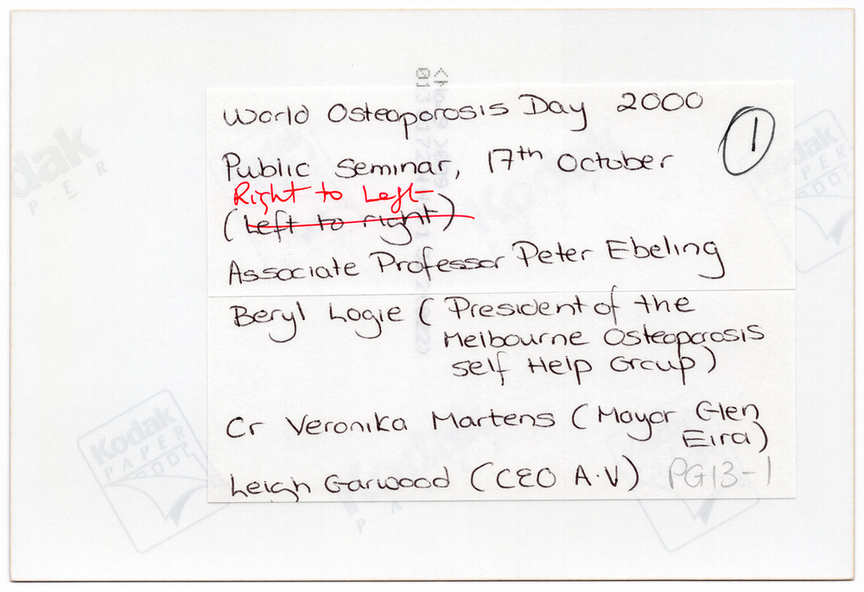 World Osteoporosis Day 2000
1
Public Seminar, 17th October
Right to Left
(Left to right)
Associate Professor Peter Ebeling
Beryl Logie (President of the
Melbourne Osteoporosis
Self Help Group)
Cr Veronika Martens (Mayor Glen
Eira)
Leigh Garwood (CEO A.V) PG13-1
Kodak
PAPER
Kodak
PAPER